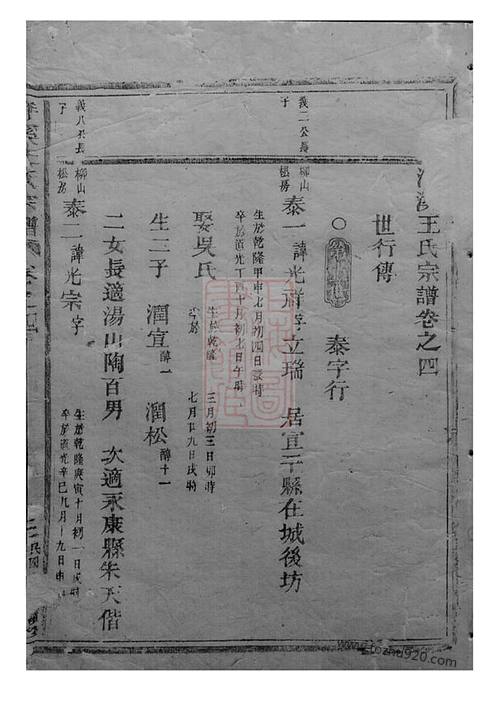 王氏宗譜卷之四
世行傳
泰字行
義二公長子
柳山松房
泰一 諱光 字立瑞 居宣平縣在城後坊
生於乾隆甲申七月初四日 時
卒於道光丁酉十月初七日午時
娶吳氏
生於乾隆 三月初三日卯時
卒於 七月廿九日戌時
生二子 潤宜 潤松
二女長適湯山陶百男 次適永康縣朱天偕
義八公長子
柳山松房
泰二 諱光宗字
生於乾隆庚寅十月初一日戌時
卒於道光辛巳九月十九日申時
www.ztozhu920.com